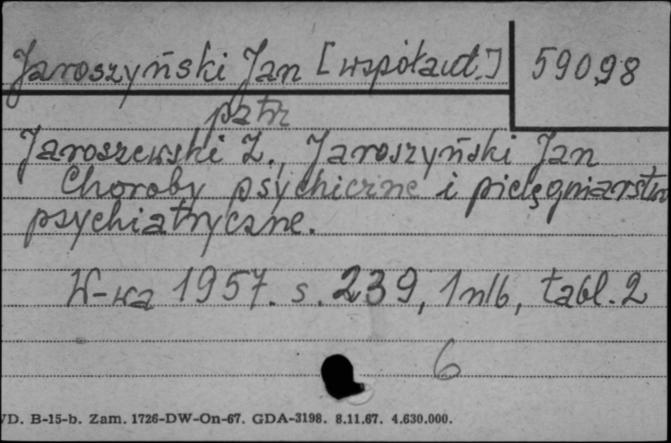 Jaroszyński Jan [współaut.] 59098
patrz
Jaroszewski Z., Jaroszyński Jan
Choroby psychiczne i pielęgniarstwo
psychiatryczne.
W-wa 1957. s. 239, 1 nlb, tabl. 2
6
VD. B-15-b. Zam. 1726-DW-On-67. GDA-3198. 8.11.67. 4.630.000.